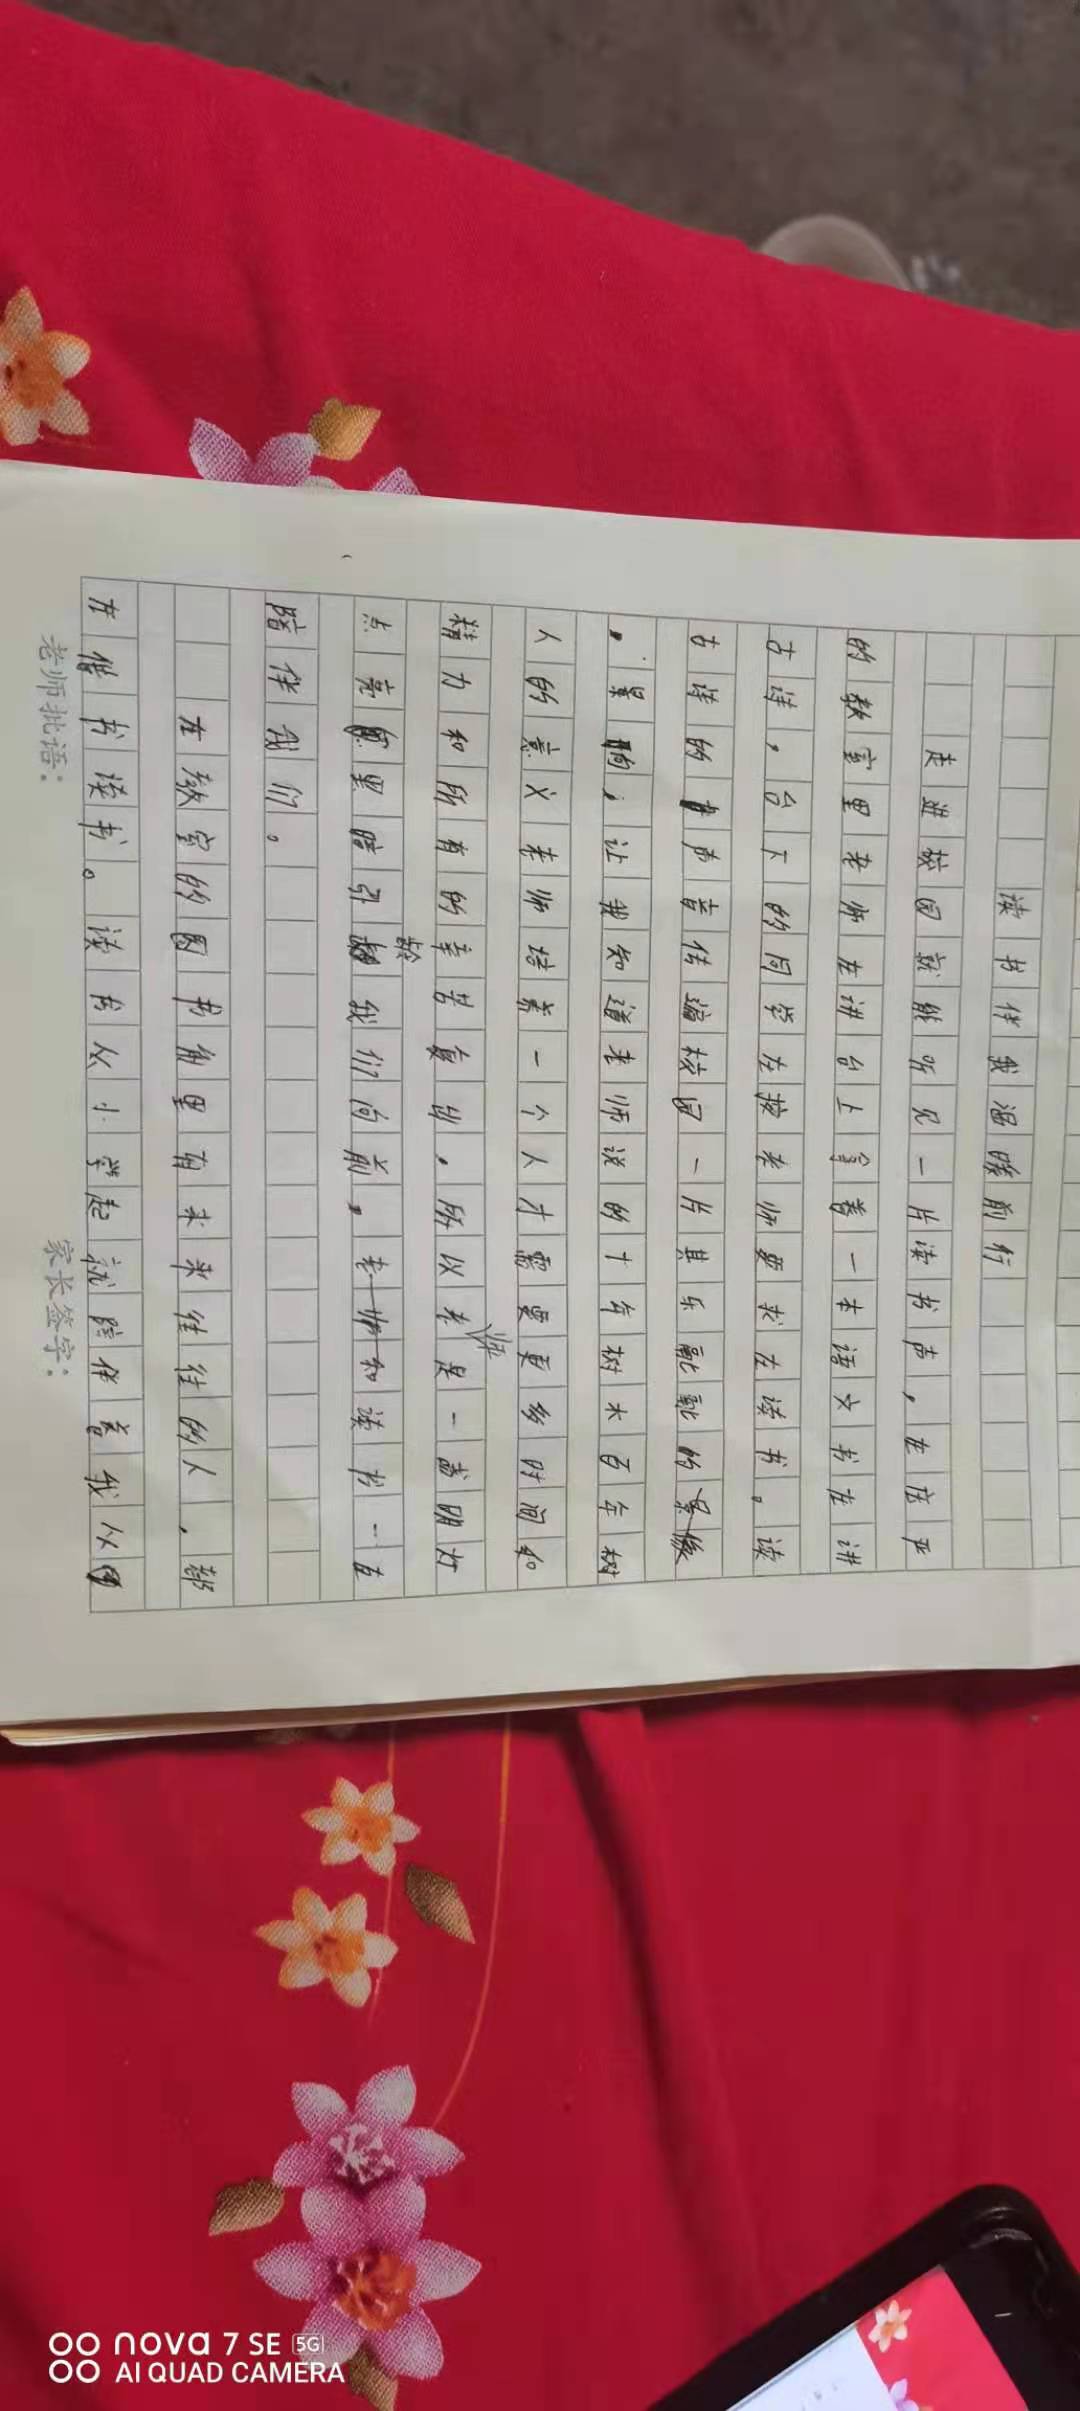 读书伴我温暖前行
走进校园就能听见一片读书声，在庄严
的教室里老师在讲台上拿着一本语文书在讲
古诗，台下的同学在按老师要求在读书。读
古诗的声音传遍校园一片其乐融融的景象
。让我知道老师说的十年树木百年树
人的意义老师培养一个人才需要更多时间和
精力和所有的辛苦复出，所以老师是一盏明灯
点亮黑暗引龄我们向前。和读书一直
陪伴我们。
在教室的图书角里有来来往往的人，都
在借书读书。读书从小学起就陪伴着我从
老师批语：
家长签字：
nova 7 SE 5G
AI QUAD CAMERA